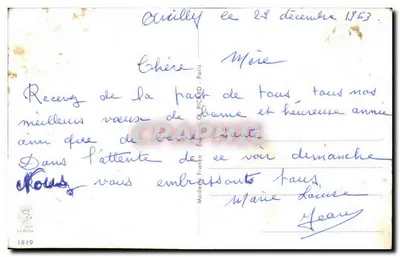 le 28 décembre 1963
Chère Mère
Recevez de la part de tous tous nos
meilleurs vœux de bonne et heureuse année
ainsi que de bonne santé.
Dans l'attente de ce voir dimanche
Nous vous embrassons tous
Marie Louise
Jean
1819